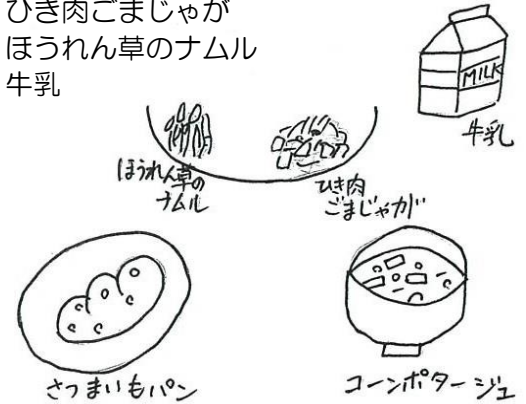 ひき肉ごまじゃが
ほうれん草のナムル
牛乳
MILK
牛乳
ほうれん草の
ナムル
ひき肉
ごまじゃが
さつまいもパン
コーンポタージュ